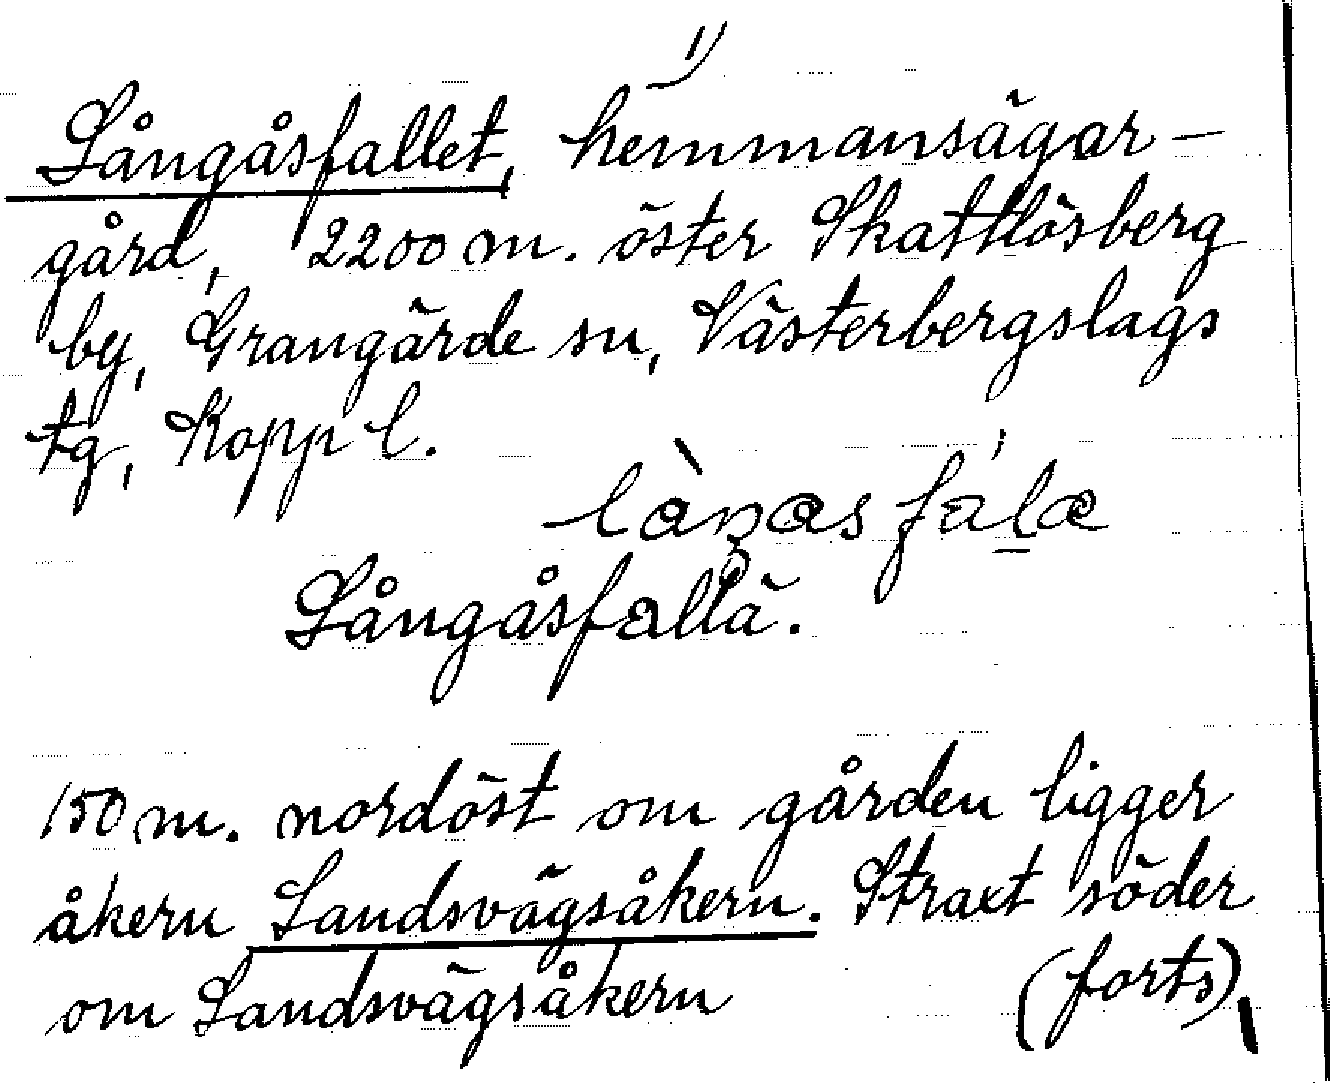 1)
Långåsfallet, hemmansägar-
gård, 2200 m. öster Skattlösberg
by, Grangärde sn, Västerbergslags
tg, Kopp l.
Långåsfallä.
150 m. nordöst om gården ligger
åkern Landsvägsåkern. Straxt söder
om Landsvägsåkern (forts)